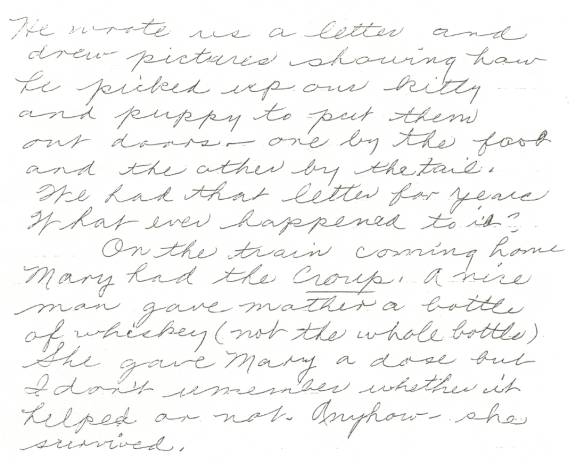 He wrote us a letter and
drew pictures showing how
he picked up our kitty
and puppy to put them
out doors - one by the foot
and the other by the tail.
We had that letter for years
What ever happened to it?
On the train coming home
Mary had the croup. A nice
man gave mother a bottle
of whiskey (not the whole bottle)
She gave Mary a dose but
I don't remember whether it
helped or not. Anyhow - she
survived.